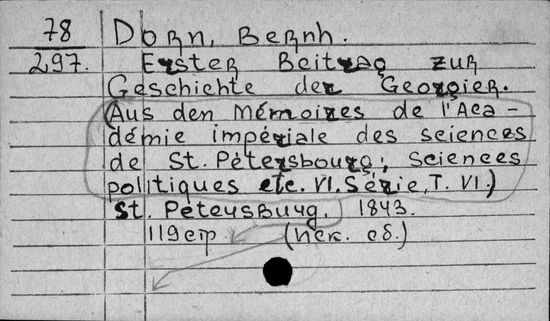 78
297.
Dorn, Bernh.
Erster Beitrag zur
Geschichte der Georgier.
(Aus den Mémoires de l'Aca-
démie impériale des sciences
de St. Pétersbourg; Sciences
politiques etc. VI. Série, T. VI.)
St. Petersburg. 1843.
119 стр (иск. сб.)